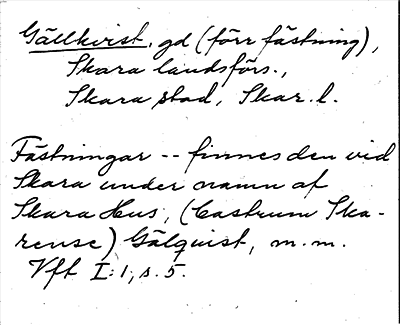 Gällkvist, gd (förr fästning),
Skara landsförs.,
Skara stad, Skar. l.
Fästningar -- finnes den vid
Skara under namn af
Skara Hus, (Castrum Ska-
rense) Gälquist, m.m.
Vft I:1, s. 5.